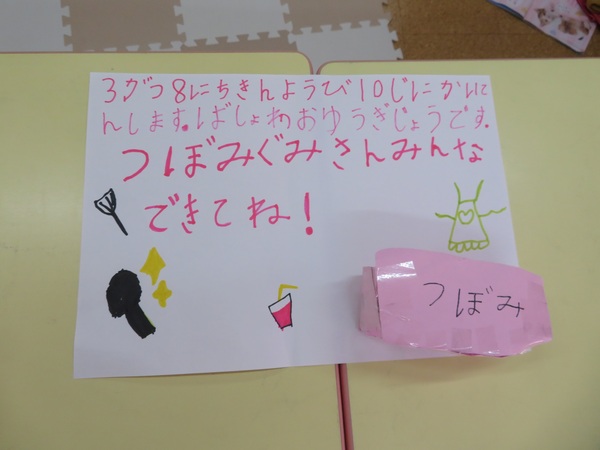 3がつ8にちきんようび10じにかいて
んします。ばしょわおゆうぎじょうです。
つぼみぐみさんみんな
できてね!
つぼみ